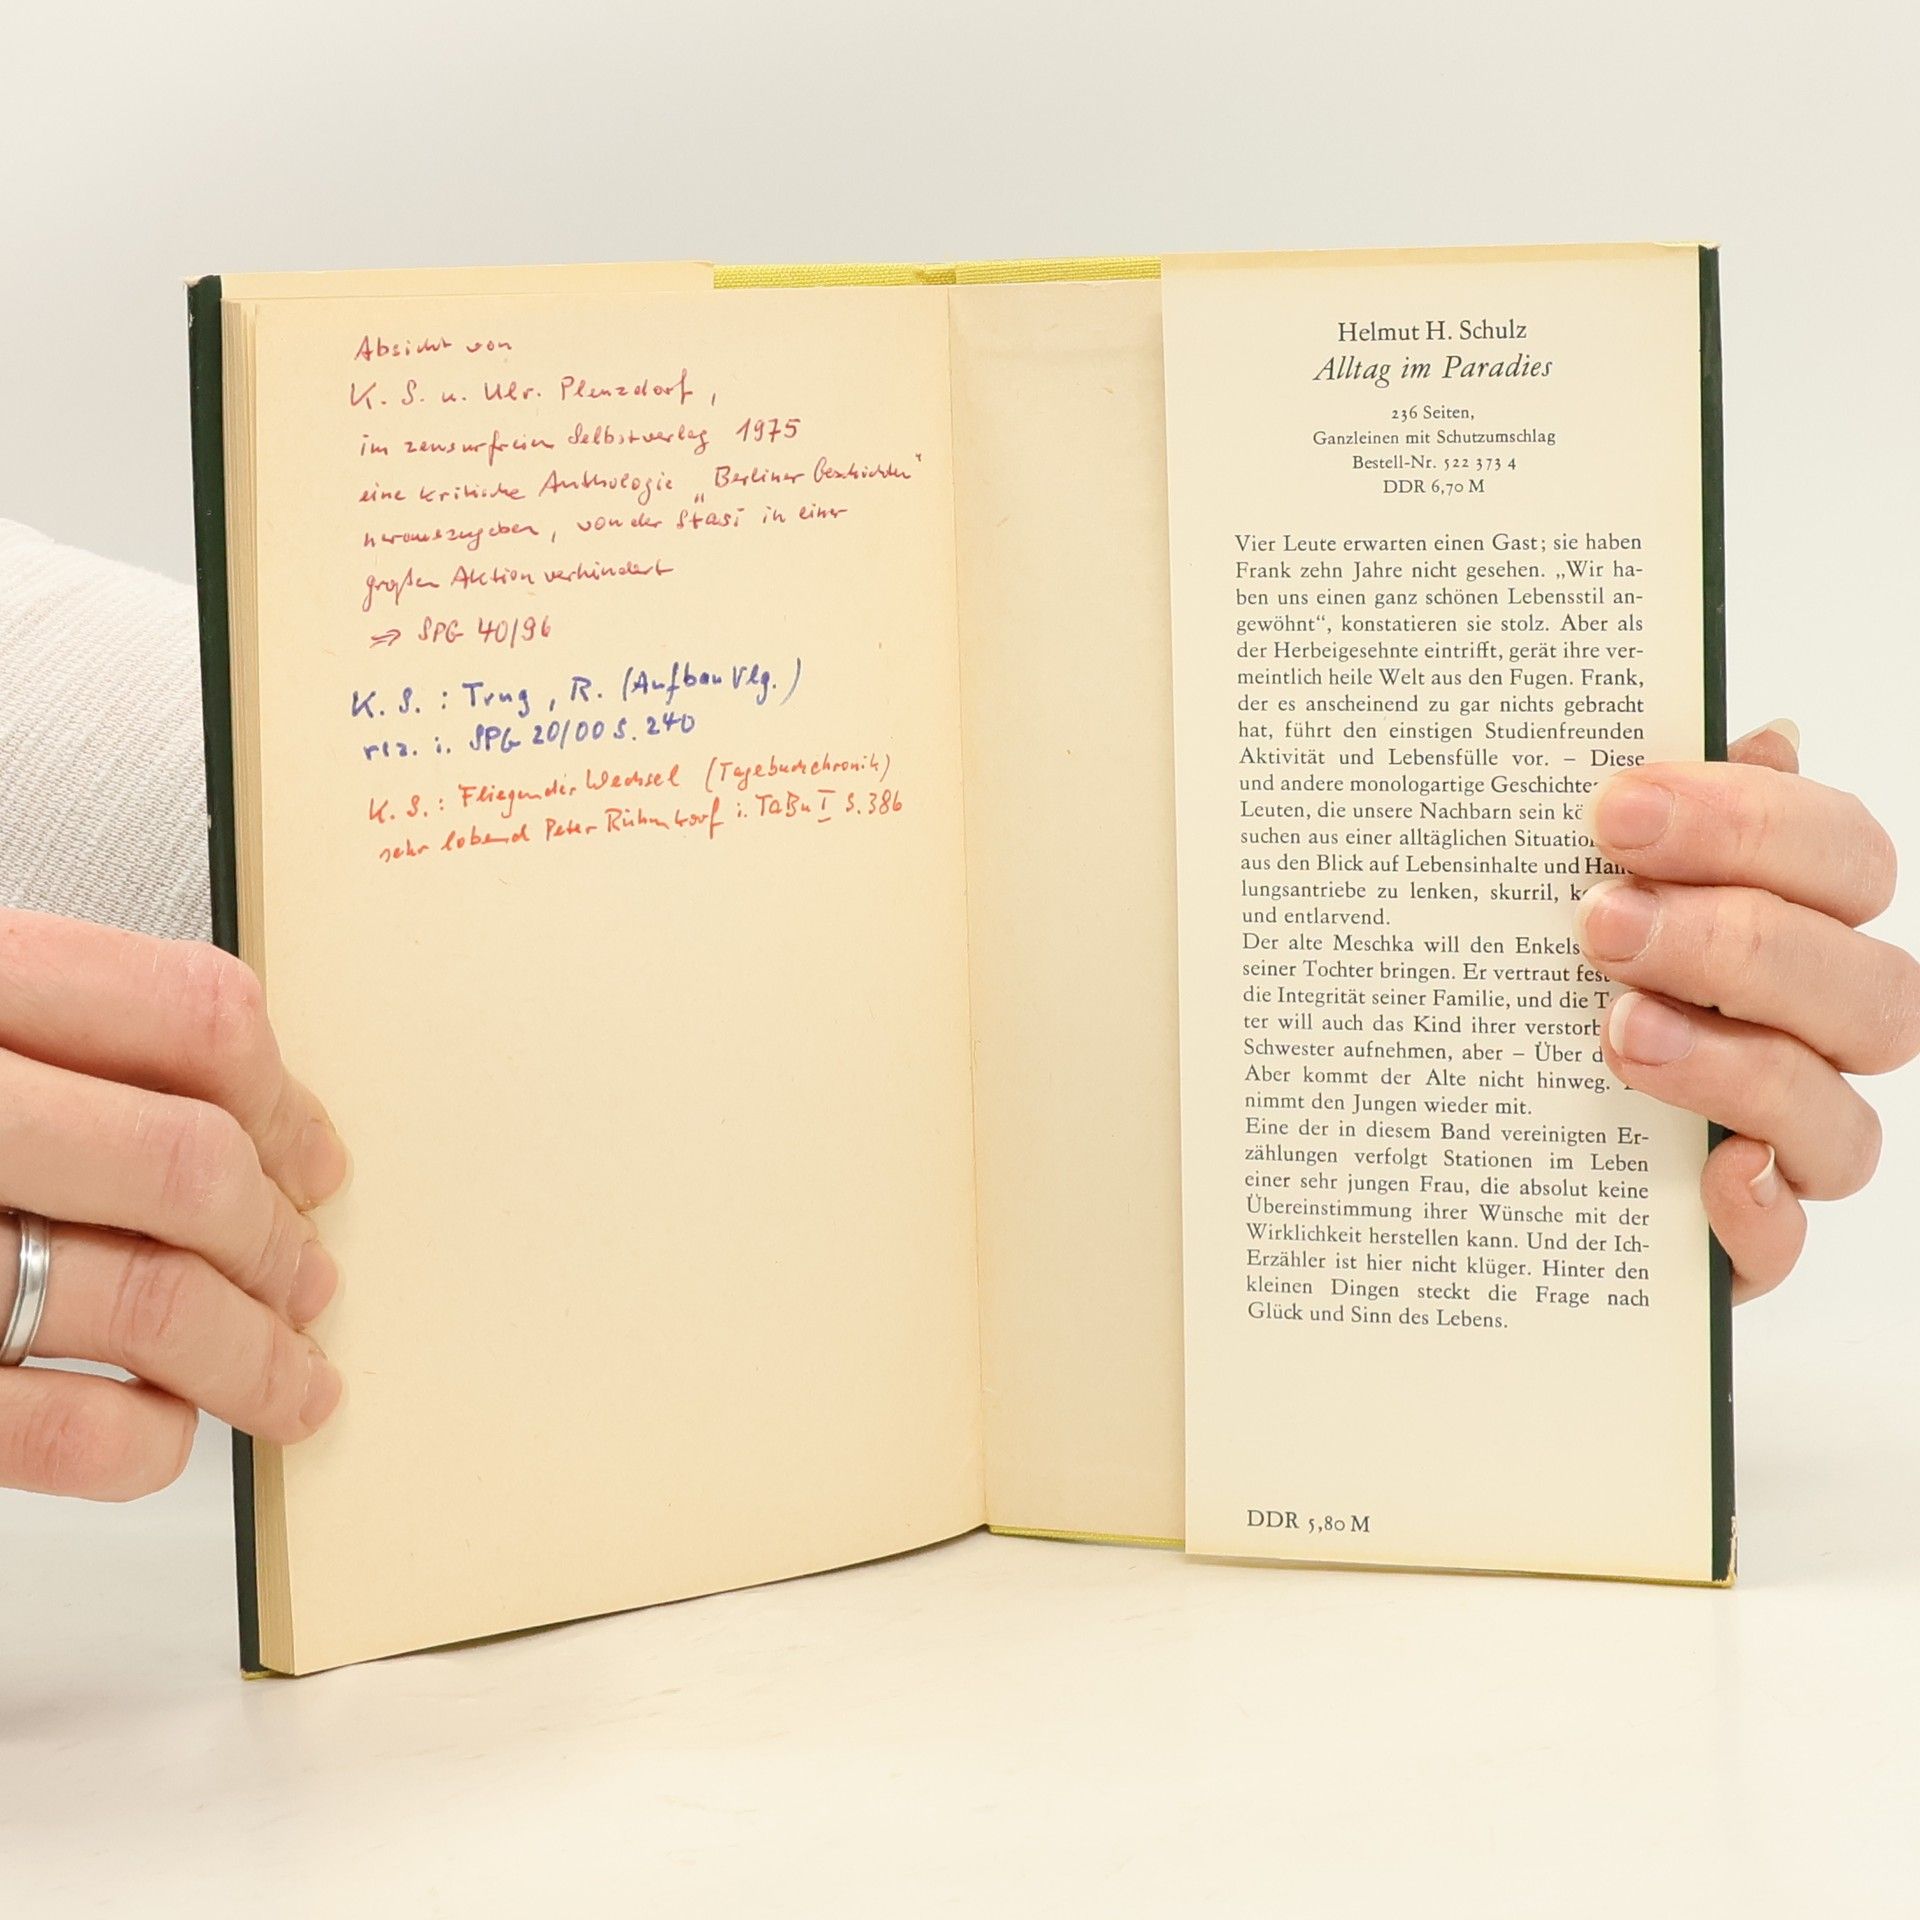 Absicht von
K. S. u. Ulr. Plenzdorf,
im zensurfreien Selbstverlag 1975
eine kritische Anthologie „Berliner Geschichten“
herauszugeben, von der Stasi in einer
großen Aktion verhindert
⇒ SPG 40/96
K. S.: Trug, R. (Aufbau Vlg.)
rez. i. SPG 20/00 S. 240
K. S.: Fliegender Wechsel (Tagebuchchronik)
sehr lobend Peter Rühmkorf i. TaBu I S. 386
Helmut H. Schulz
Alltag im Paradies
236 Seiten,
Ganzleinen mit Schutzumschlag
Bestell-Nr. 522 373 4
DDR 6,70 M
Vier Leute erwarten einen Gast; sie haben
Frank zehn Jahre nicht gesehen. „Wir ha-
ben uns einen ganz schönen Lebensstil an-
gewöhnt“, konstatieren sie stolz. Aber als
der Herbeigesehnte eintrifft, gerät ihre ver-
meintlich heile Welt aus den Fugen. Frank,
der es anscheinend zu gar nichts gebracht
hat, führt den einstigen Studienfreunden
Aktivität und Lebensfülle vor. – Diese
und andere monologartige Geschichte
Leuten, die unsere Nachbarn sein kö
suchen aus einer alltäglichen Situatio
aus den Blick auf Lebensinhalte und Han
lungsantriebe zu lenken, skurril, k
und entlarvend.
Der alte Meschka will den Enkels
seiner Tochter bringen. Er vertraut fes
die Integrität seiner Familie, und die T
ter will auch das Kind ihrer verstorb
Schwester aufnehmen, aber – Über d
Aber kommt der Alte nicht hinweg.
nimmt den Jungen wieder mit.
Eine der in diesem Band vereinigten Er-
zählungen verfolgt Stationen im Leben
einer sehr jungen Frau, die absolut keine
Übereinstimmung ihrer Wünsche mit der
Wirklichkeit herstellen kann. Und der Ich-
Erzähler ist hier nicht klüger. Hinter den
kleinen Dingen steckt die Frage nach
Glück und Sinn des Lebens.
DDR 5,80 M